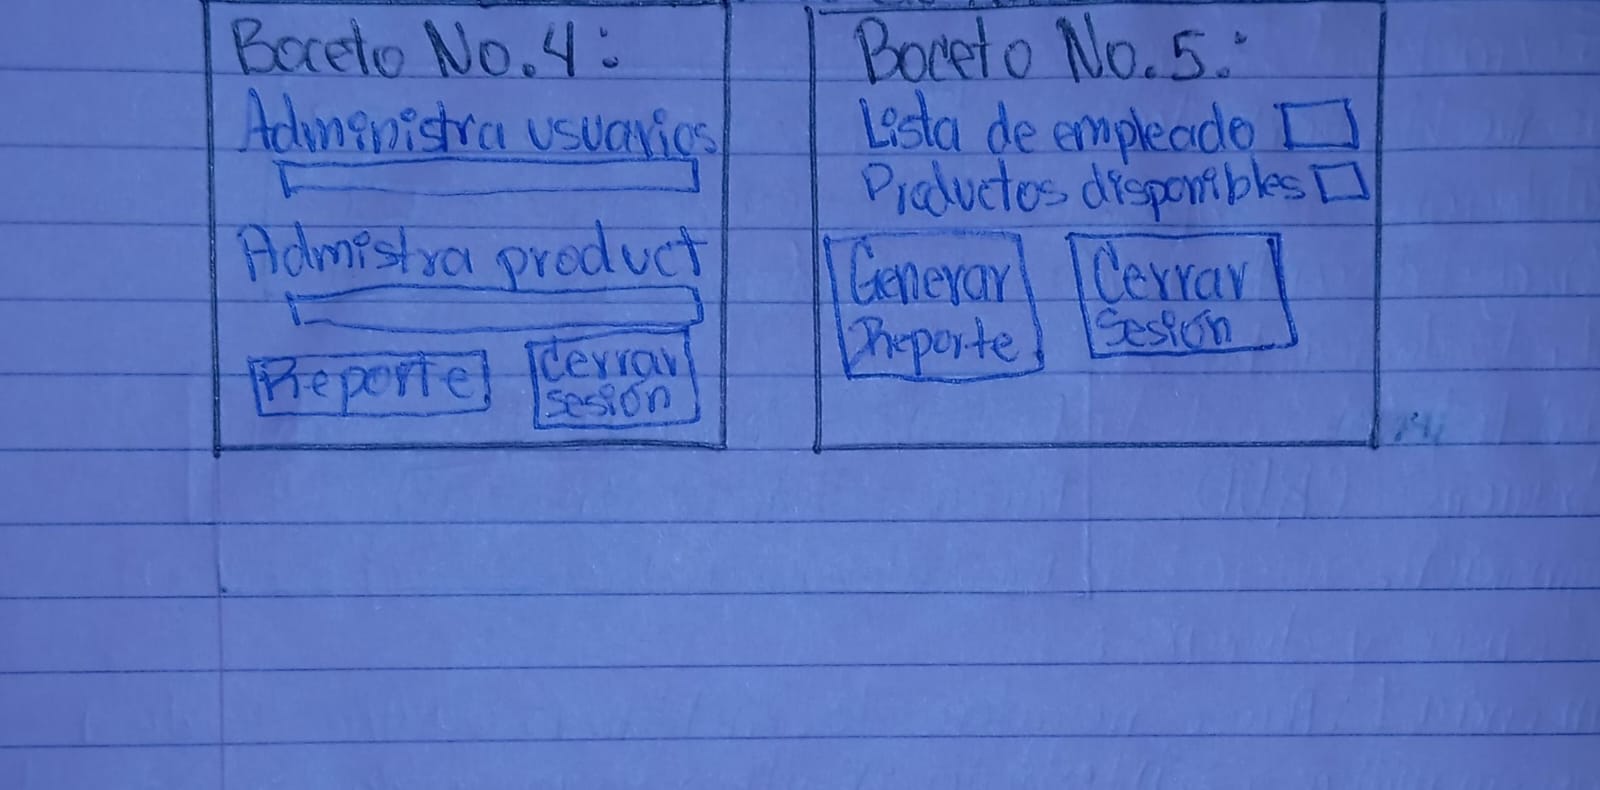 Boceto No.4:
Administra usuarios
Admistra product
Reporte
Cerrar
sesión
Boceto No.5:
Lista de empleado
Productos disponibles
Generar
Reporte
Cerrar
sesión